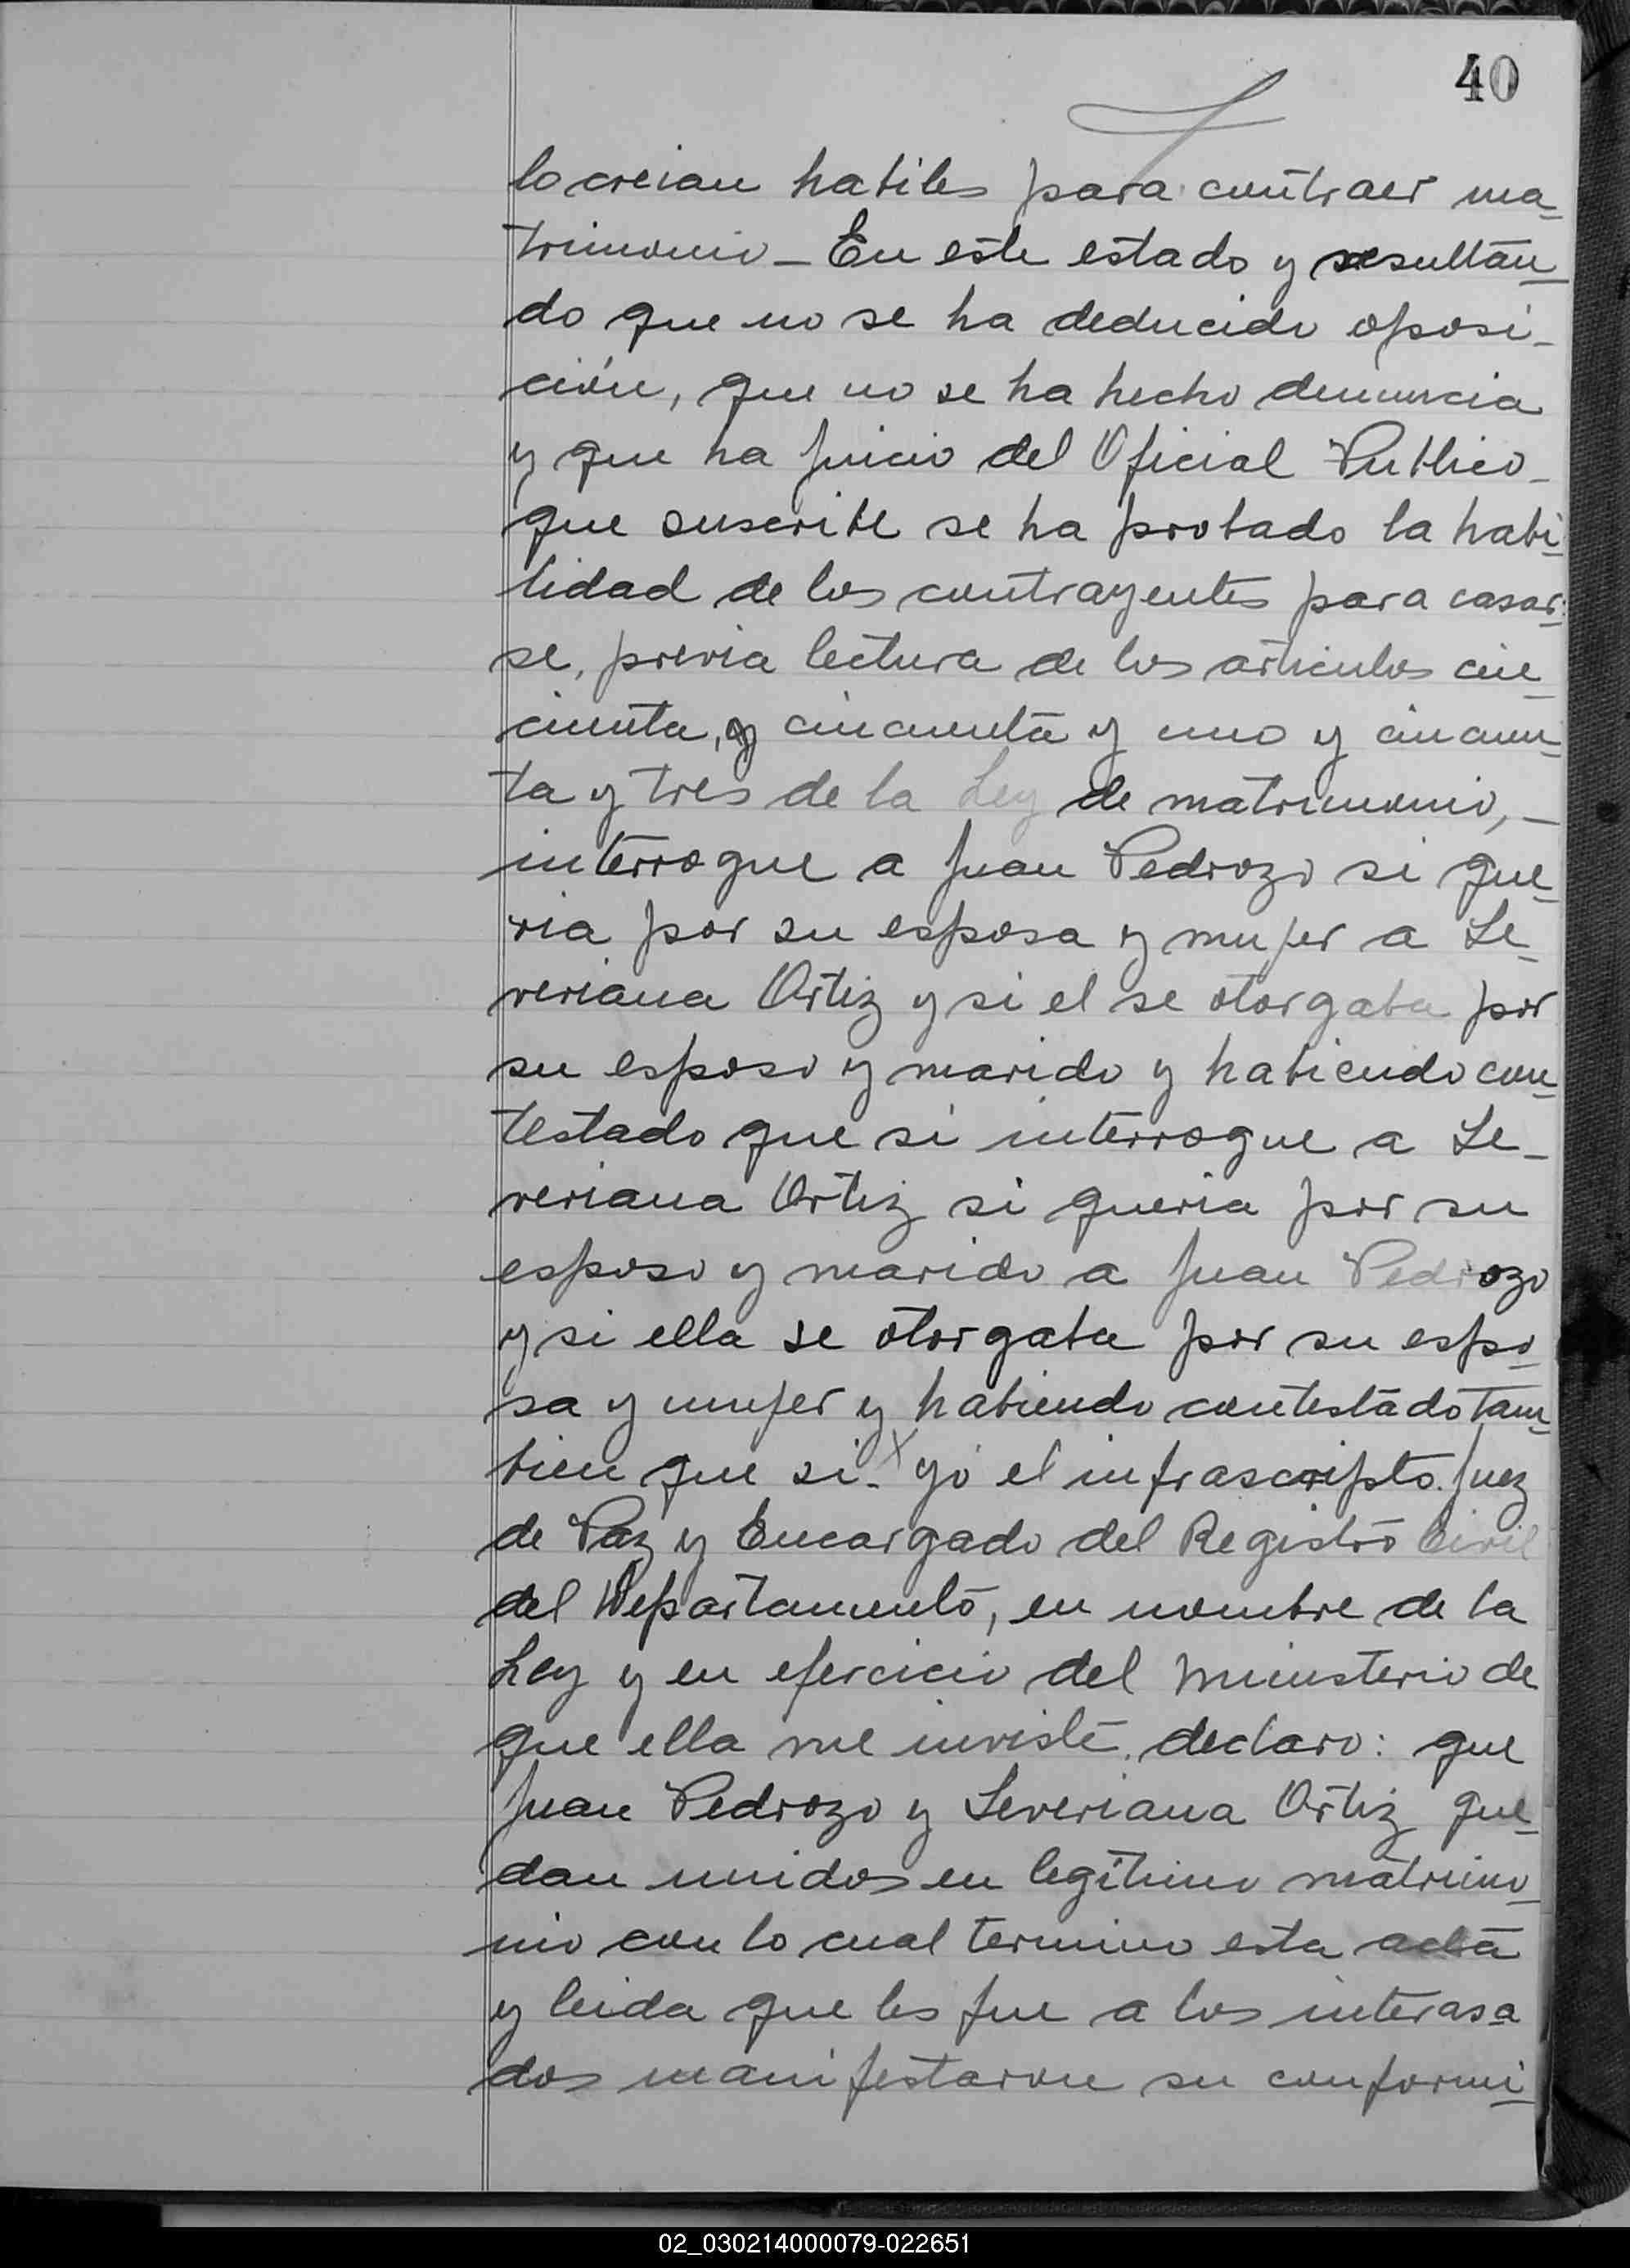 40
lo creian habiles para contraer ma-
trimonio - En este estado y resultan-
do que no se ha deducido oposi-
ción, que no se ha hecho denuncia
y que ha juicio del Oficial Publico-
que suscribe se ha probado la habi-
lidad de los contrayentes para casar-
se, previa lectura de los articulos cin-
cuenta, y cincuenta y uno y cincuen-
ta y tres de la Ley de matrimonio, -
interrogue a Juan Pedrozo si que-
ria por su esposa y mujer a Se-
veriana Ortiz y si el se otorgaba por
su esposo y marido y habiendo con-
testado que si interrogue a Se-
veriana Ortiz si queria por su
esposo y marido a Juan Pedrozo
y si ella se otorgaba por su espo-
sa y mujer y habiendo contestado tam-
bien que si - x yó el infrascripto Juez
de Paz y Encargado del Registro Civil
del Departamento, en nombre de la
Ley y en ejercicio del Ministerio de
que ella me inviste, declaro: que
Juan Pedrozo y Severiana Ortiz que-
dan unidos en legítimo matrimo-
nio con lo cual termino esta acta
y leida que les fue a los interasa
dos manifestaron su conformi-
02_030214000079-022651